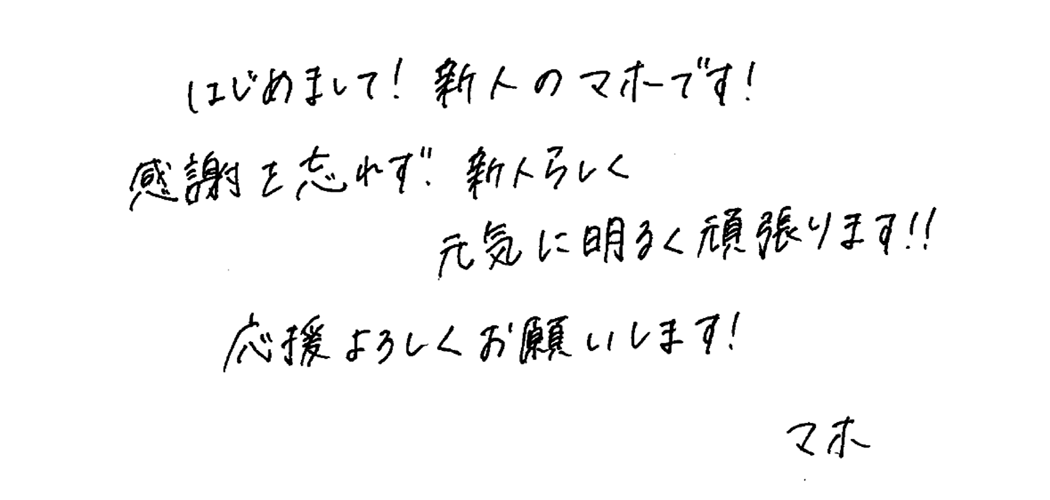 はじめまして！新人のマホです！
感謝を忘れず、新人らしく
元気に明るく頑張ります！！
応援よろしくお願いします！
マホ